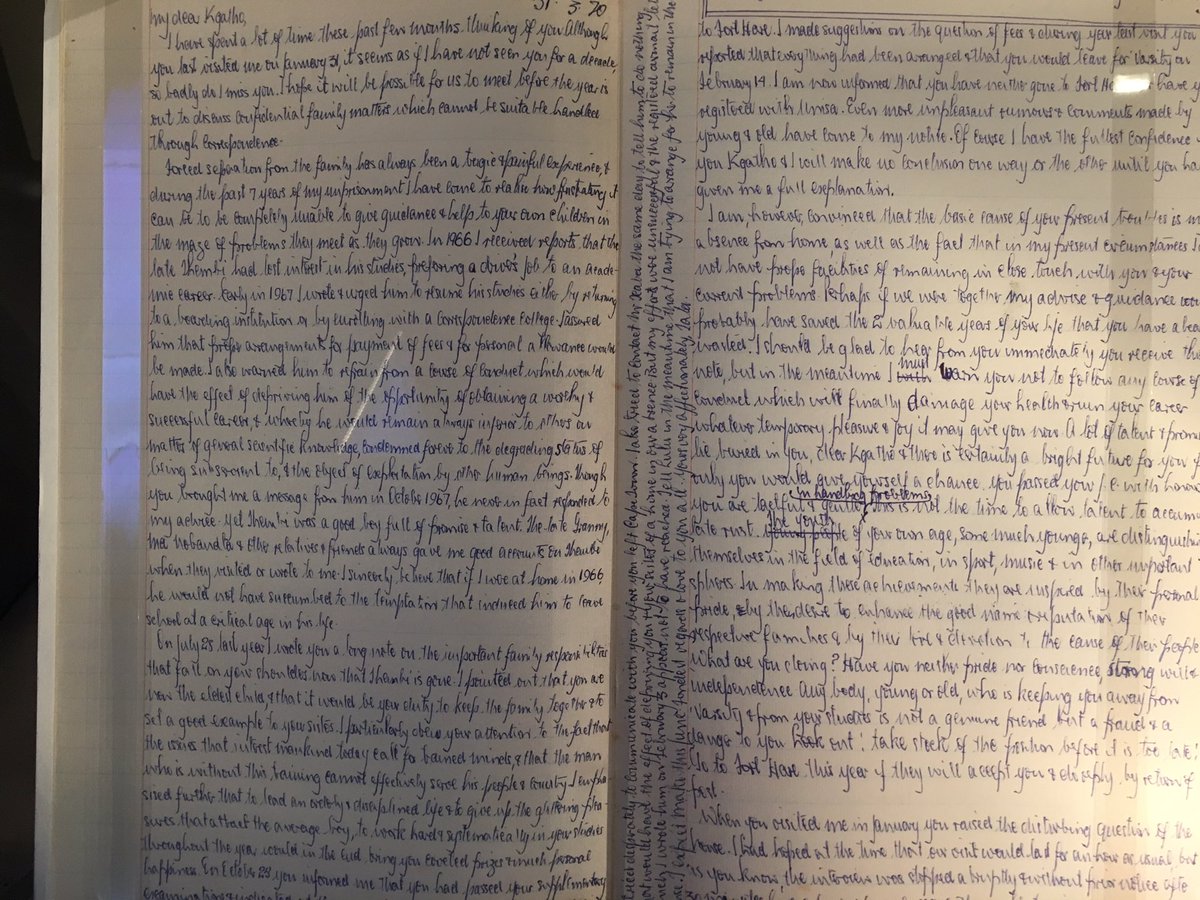 31. 3. 70
My dear Kgatho,
I have spent a lot of time these past few months thinking of you. Although
you last visited me on January 31, it seems as if I have not seen you for a decade,
so badly do I miss you. I hope it will be possible for us to meet before the year is
out to discuss confidential family matters which cannot be suitable handled
through correspondence.
Forced separation from the family has always been a tragic & painful experience, &
during the past 7 years of my imprisonment I have come to realise how frustrating it
can be to be completely unable to give guidance & help to your own children in
the maze of problems they meet as they grow. In 1966 I received reports that the
late Thembi had lost interest in his studies, preferring a driver's job to an acade-
mic career. Early in 1967 I wrote & urged him to resume his studies either by returning
to a boarding institution or by enrolling with a correspondence college. I assured
him that proper arrangements for payment of fees & for personal allowance would
be made. I also warned him to refrain from a course of conduct which would
have the effect of depriving him of the opportunity of obtaining a worthy &
successful career, & whereby he would remain always inferior to others on
matters of general scientific knowledge, condemned forever to the degrading status of
being subservient to, & the object of exploitation by other human beings. Though
you brought me a message from him in October 1967, he never in fact responded to
my advice. Yet Thembi was a good boy full of promise & talent. The late Granny,
Ma Nobandla & other relatives & friends always gave me good accounts on Thembi
when they visited or wrote to me. I sincerely believe that if I were at home in 1966
he would not have succumbed to the temptation that induced him to leave
school at a critical age in his life.
On July 28 last year I wrote you a long note on the important family responsibilities
that fall on your shoulders now that Thembi is gone. I pointed out that you are
now the eldest child, & that it would be your duty to keep the family together & to
set a good example to your sisters. I particularly drew your attention to the fact that
the issues that interest mankind today call for trained minds, & that the man
who is without this training cannot effectively serve his people & country. I empha-
sized further that to lead an orderly & disciplined life & to give up the glittering plea-
sures that attract the average boy, to work hard & systematically in your studies
throughout the year would in the end bring you coveted prizes & much personal
happiness. On October 28 you informed me that you had passed your supplementary
to Fort Hare. I made suggestions on the question of fees & during your last visit you
reported that everything had been arranged & that you would leave for Varsity on
February 14. I am now informed that you have neither gone to Fort Have you
registered with Unisa. Even more unpleasant rumours & comments made by
young & old have come to my notice. Of course I have the fullest confidence
you Kgatho & I will make no conclusion one way or the other until you ha
given me a full explanation.
I am, however, convinced that the basic cause of your present troubles is m
absence from home, as well as the fact that in my present circumstances I
not have proper facilities of remaining in close touch with you & your
current problems. Perhaps if we were together my advise & guidance wou
probably have saved the 2 valuable years of your life that you have already
wasted. I should be glad to hear from you immediately you receive this
note, but in the meantime I must warn you not to follow any course of
conduct which will finally damage your health & ruin your career
whatever temporary pleasure & joy it may give you now. A lot of talent & prom
lie buried in you, dear Kgatho & there is certainly a bright future for you if
only you would give yourself a chance. You passed your J.C. with honou
in handling problems
you are tactful & gentle this is not the time to allow talent to accumu
late rust. the youth of your own age, some much younger, are distinguishing
themselves in the field of education, in sport, music & in other important
spheres. In making these achievements they are inspired by their personal
pride & by the desire to enhance the good name & reputation of their
respective families & by their love & devotion to the cause of their people
What are you doing? Have you neither pride nor conscience, strong will &
independence Any body, young or old, who is keeping you away from
Varsity & from your studies is not a genuine friend but a fraud & a
danger to you look out! take stock of the position before it is too late!
Go to Fort Hare this year if they will accept you & do reply by return of
post.
When you visited me in January you raised the disturbing question of the
house. I had hoped at the time that our visit would last for an hour as usual but
as you know, the interview was stopped abruptly & without prior notice after
tried desperately to communicate with you before you left Cape Town. I also tried to contact Mr Kabe the same day to tell him to do nothing
that would have the effect of depriving you & your sisters of a home in our absence but my efforts were unsuccessful & the registered airmail
I wrote him on February 3 appears not to have reached. Tell Kulu in the meantime that I am trying to arrange for her to remain in the
Maki this time. Fondest regards & love to you all. Yours very affectionately, Tata